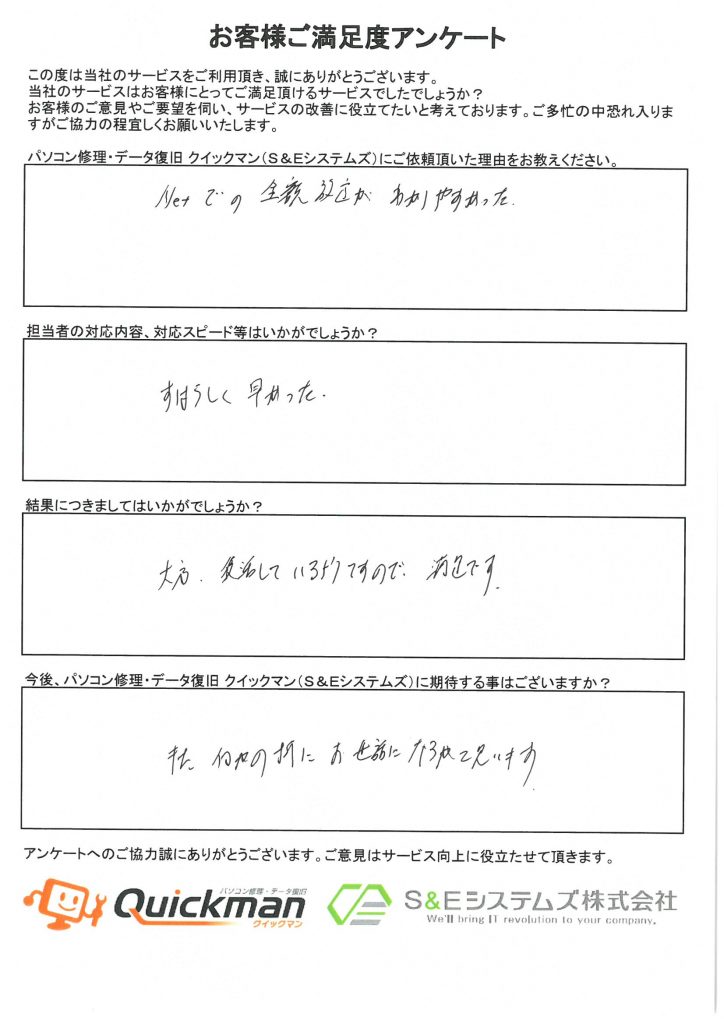 お客様ご満足度アンケート
この度は当社のサービスをご利用頂き、誠にありがとうございます。
当社のサービスはお客様にとってご満足頂けるサービスでしたでしょうか？
お客様のご意見やご要望を伺い、サービスの改善に役立てたいと考えております。ご多忙の中恐れ入りま
すがご協力の程宜しくお願いいたします。
パソコン修理・データ復旧 クイックマン（S＆Eシステムズ）にご依頼頂いた理由をお教えください。
Netでの 金額 設定が わかりやすかった.
担当者の対応内容、対応スピード等はいかがでしょうか？
すばらしく 早かった.
結果につきましてはいかがでしょうか？
大方. 復活して いるようですので、満足です.
今後、パソコン修理・データ復旧 クイックマン（S＆Eシステムズ）に期待する事はございますか？
また、何かの折に お世話に なるかと思います.
アンケートへのご協力誠にありがとうございます。ご意見はサービス向上に役立たせて頂きます。
パソコン修理・データ復旧
Quickman
クイックマン
S&Eシステムズ株式会社
We'll bring IT revolution to your company.